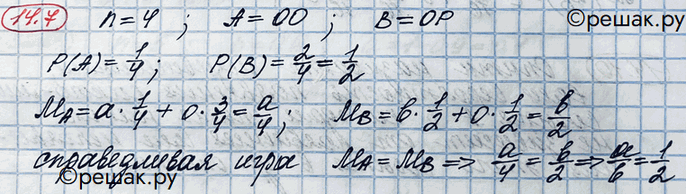 ©решак.ру
14.7 n=4 ; A=OO ; B=OP
P(A)=1/4; P(B)=2/4=1/2
M_A=a·1/4+0·3/4=a/4; M_B=b·1/2+0·1/2=b/2
справедливая игра M_A=M_B ⇒ a/4=b/2 ⇒ a/b=1/2
©решак.ру